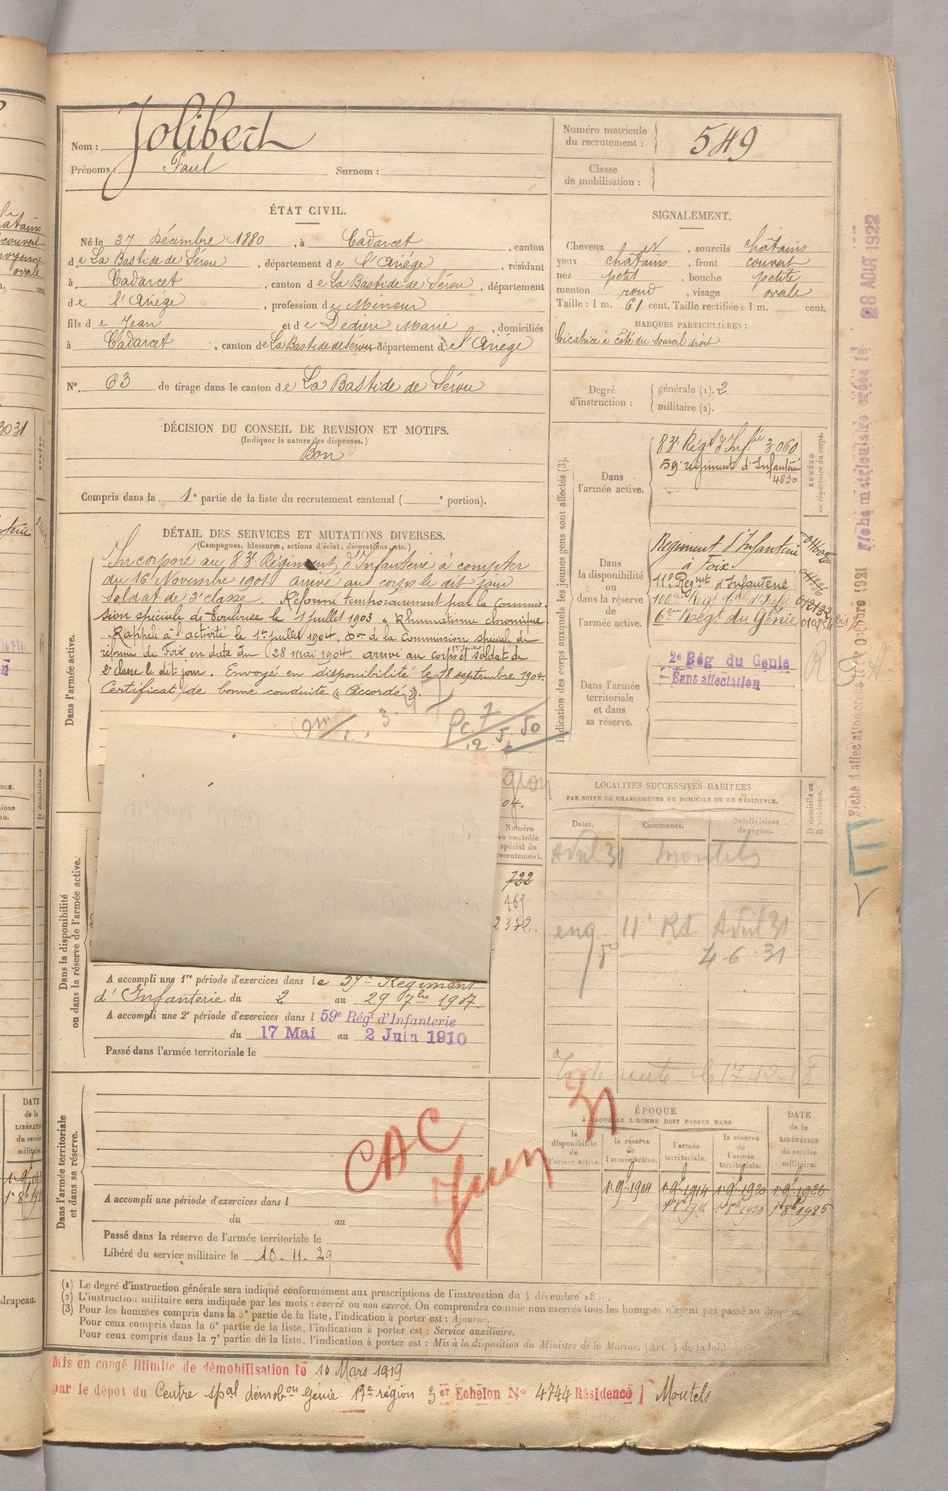 Nom : Jolibert
Prénoms : Paul Surnom :
Numéro matricule du recrutement : 549
Classe de mobilisation :
ÉTAT CIVIL.
Né le 27 Décembre 1880, à Cadarcet, canton
de La Bastide de Sérou, département de l'Ariége, résidant
à Cadarcet, canton de La Bastide de Sérou, département
de l'Ariége, profession de Mineur
fils de Jean et de Dedieu Marie, domiciliés
à Cadarcet, canton de La Bastide de Sérou département de l'Ariége
N° 63 de tirage dans le canton de La Bastide de Sérou
SIGNALEMENT.
Cheveux et, sourcils châtains
yeux châtains, front couvert
nez petit, bouche petite
menton rond, visage ovale
Taille : 1 m. 61 cent. Taille rectifiée : 1 m. cent.
MARQUES PARTICULIÈRES :
Cicatrice à côté du sourcil droit
Degré d'instruction : générale (1). 2
militaire (2).
DÉCISION DU CONSEIL DE REVISION ET MOTIFS.
(Indiquer la nature des dispenses.)
Bon
Compris dans la 1e partie de la liste du recrutement cantonal ( e portion).
DÉTAIL DES SERVICES ET MUTATIONS DIVERSES.
(Campagnes, blessures, actions d'éclat, décorations, etc.)
Dans l'armée active.
Incorporé au 83e Régiment d'Infanterie à compter
du 16 Novembre 1901 arrivé au corps le dit jour
soldat de 2e classe. Réformé temporairement par la Commis-
sion spéciale de Toulouse le 1 Juillet 1903 Rhumatisme chronique
Rappelé à l'activité le 1er juillet 1904, don de la Commission spéciale de
réforme de Foix en date du 28 mai 1904 arrivé au corps et soldat de
2e classe le dit jour. Envoyé en disponibilité le 18 septembre 1904.
Certificat de bonne conduite "Accordé".
Indication des corps auxquels les jeunes gens sont affectés (3).
NUMÉRO au répertoire du corps.
Dans l'armée active.
83e Régt d'Infrie 3060
59e régiment d'Infanterie
4830
Dans la disponibilité ou dans la réserve de l'armée active.
Régiment d'Infanterie
à Foix
11e Regmt d'Infanterie
6me Régt du Génie
Dans l'armée territoriale et dans sa réserve.
2e Rég du Genie
Sans affectation
Octobre 1921 Fiche matriculaire créée le 28 AOUT 1922
Dans la disponibilité ou dans la réserve de l'armée active.
Numéro au contrôle spécial du recrutement.
722
469
2352.
A accompli une 1re période d'exercices dans le 59e Régiment
d'Infanterie du 2 au 29 7bre 1907.
A accompli une 2e période d'exercices dans l 59e Régt d'Infanterie
du 17 Mai au 2 Juin 1910
Passé dans l'armée territoriale le
LOCALITÉS SUCCESSIVES HABITÉES
PAR SUITE DE CHANGEMENTS DE DOMICILE OU DE RÉSIDENCE.
Dates. Communes. Subdivisions de région. D domicile ou R résidence.
Avril 31 Montels
eng. 11e Rt Avril 31
4.6.31
Dans l'armée territoriale et dans sa réserve.
CAC
Juin 31
A accompli une période d'exercices dans l
du au
Passé dans la réserve de l'armée territoriale le
Libéré du service militaire le 10.11.29
ÉPOQUE
À LAQUELLE L'HOMME DOIT PASSER DANS
la disponibilité de l'armée active.
la réserve de l'armée active.
l'armée territoriale.
la réserve de l'armée territoriale.
DATE de la LIBÉRATION du service militaire.
1er 9bre 1904 1er 9bre 1914 1er 9bre 1920 1er 9bre 1926
(1) Le degré d'instruction générale sera indiqué conformément aux prescriptions de l'instruction du 4 décembre
(2) L'instruction militaire sera indiquée par les mots : exercé ou non exercé. On comprendra comme non exercés tous les hommes n'ayant pas passé au drapeau.
(3) Pour les hommes compris dans la 5e partie de la liste, l'indication à porter est : Ajourné.
Pour ceux compris dans la 6e partie de la liste, l'indication à porter est : Service auxiliaire.
Pour ceux compris dans la 7e partie de la liste, l'indication à porter est : Mis à la disposition du Ministre de la Marine. (Art. 4 de la loi.)
Mis en congé illimité de démobilisation le 10 Mars 1919
par le dépot du Centre spal démobon Génie 17e région 3er Echelon N° 4744 Résidence Montels